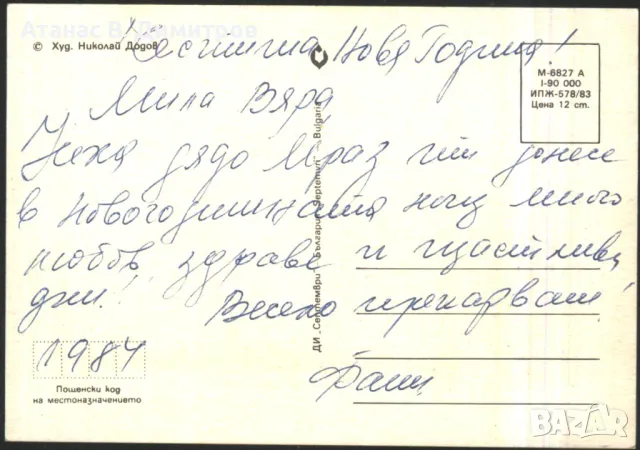 Атанас В. Димитров
© Худ. Николай Додов
Честита Нова Година!
М-6827 А
I-90 000
ИПЖ-578/83
Цена 12 ст.
Мила Вяра
Нека дядо Мраз ти донесе
в Новогодишната нощ много
любов, здраве и щастливи
дни! Весело прекарване!
1984
Фани
Пощенски код
на местоназначението
ДИ „Септември" България Septemvri Bulgaria
BAZAR